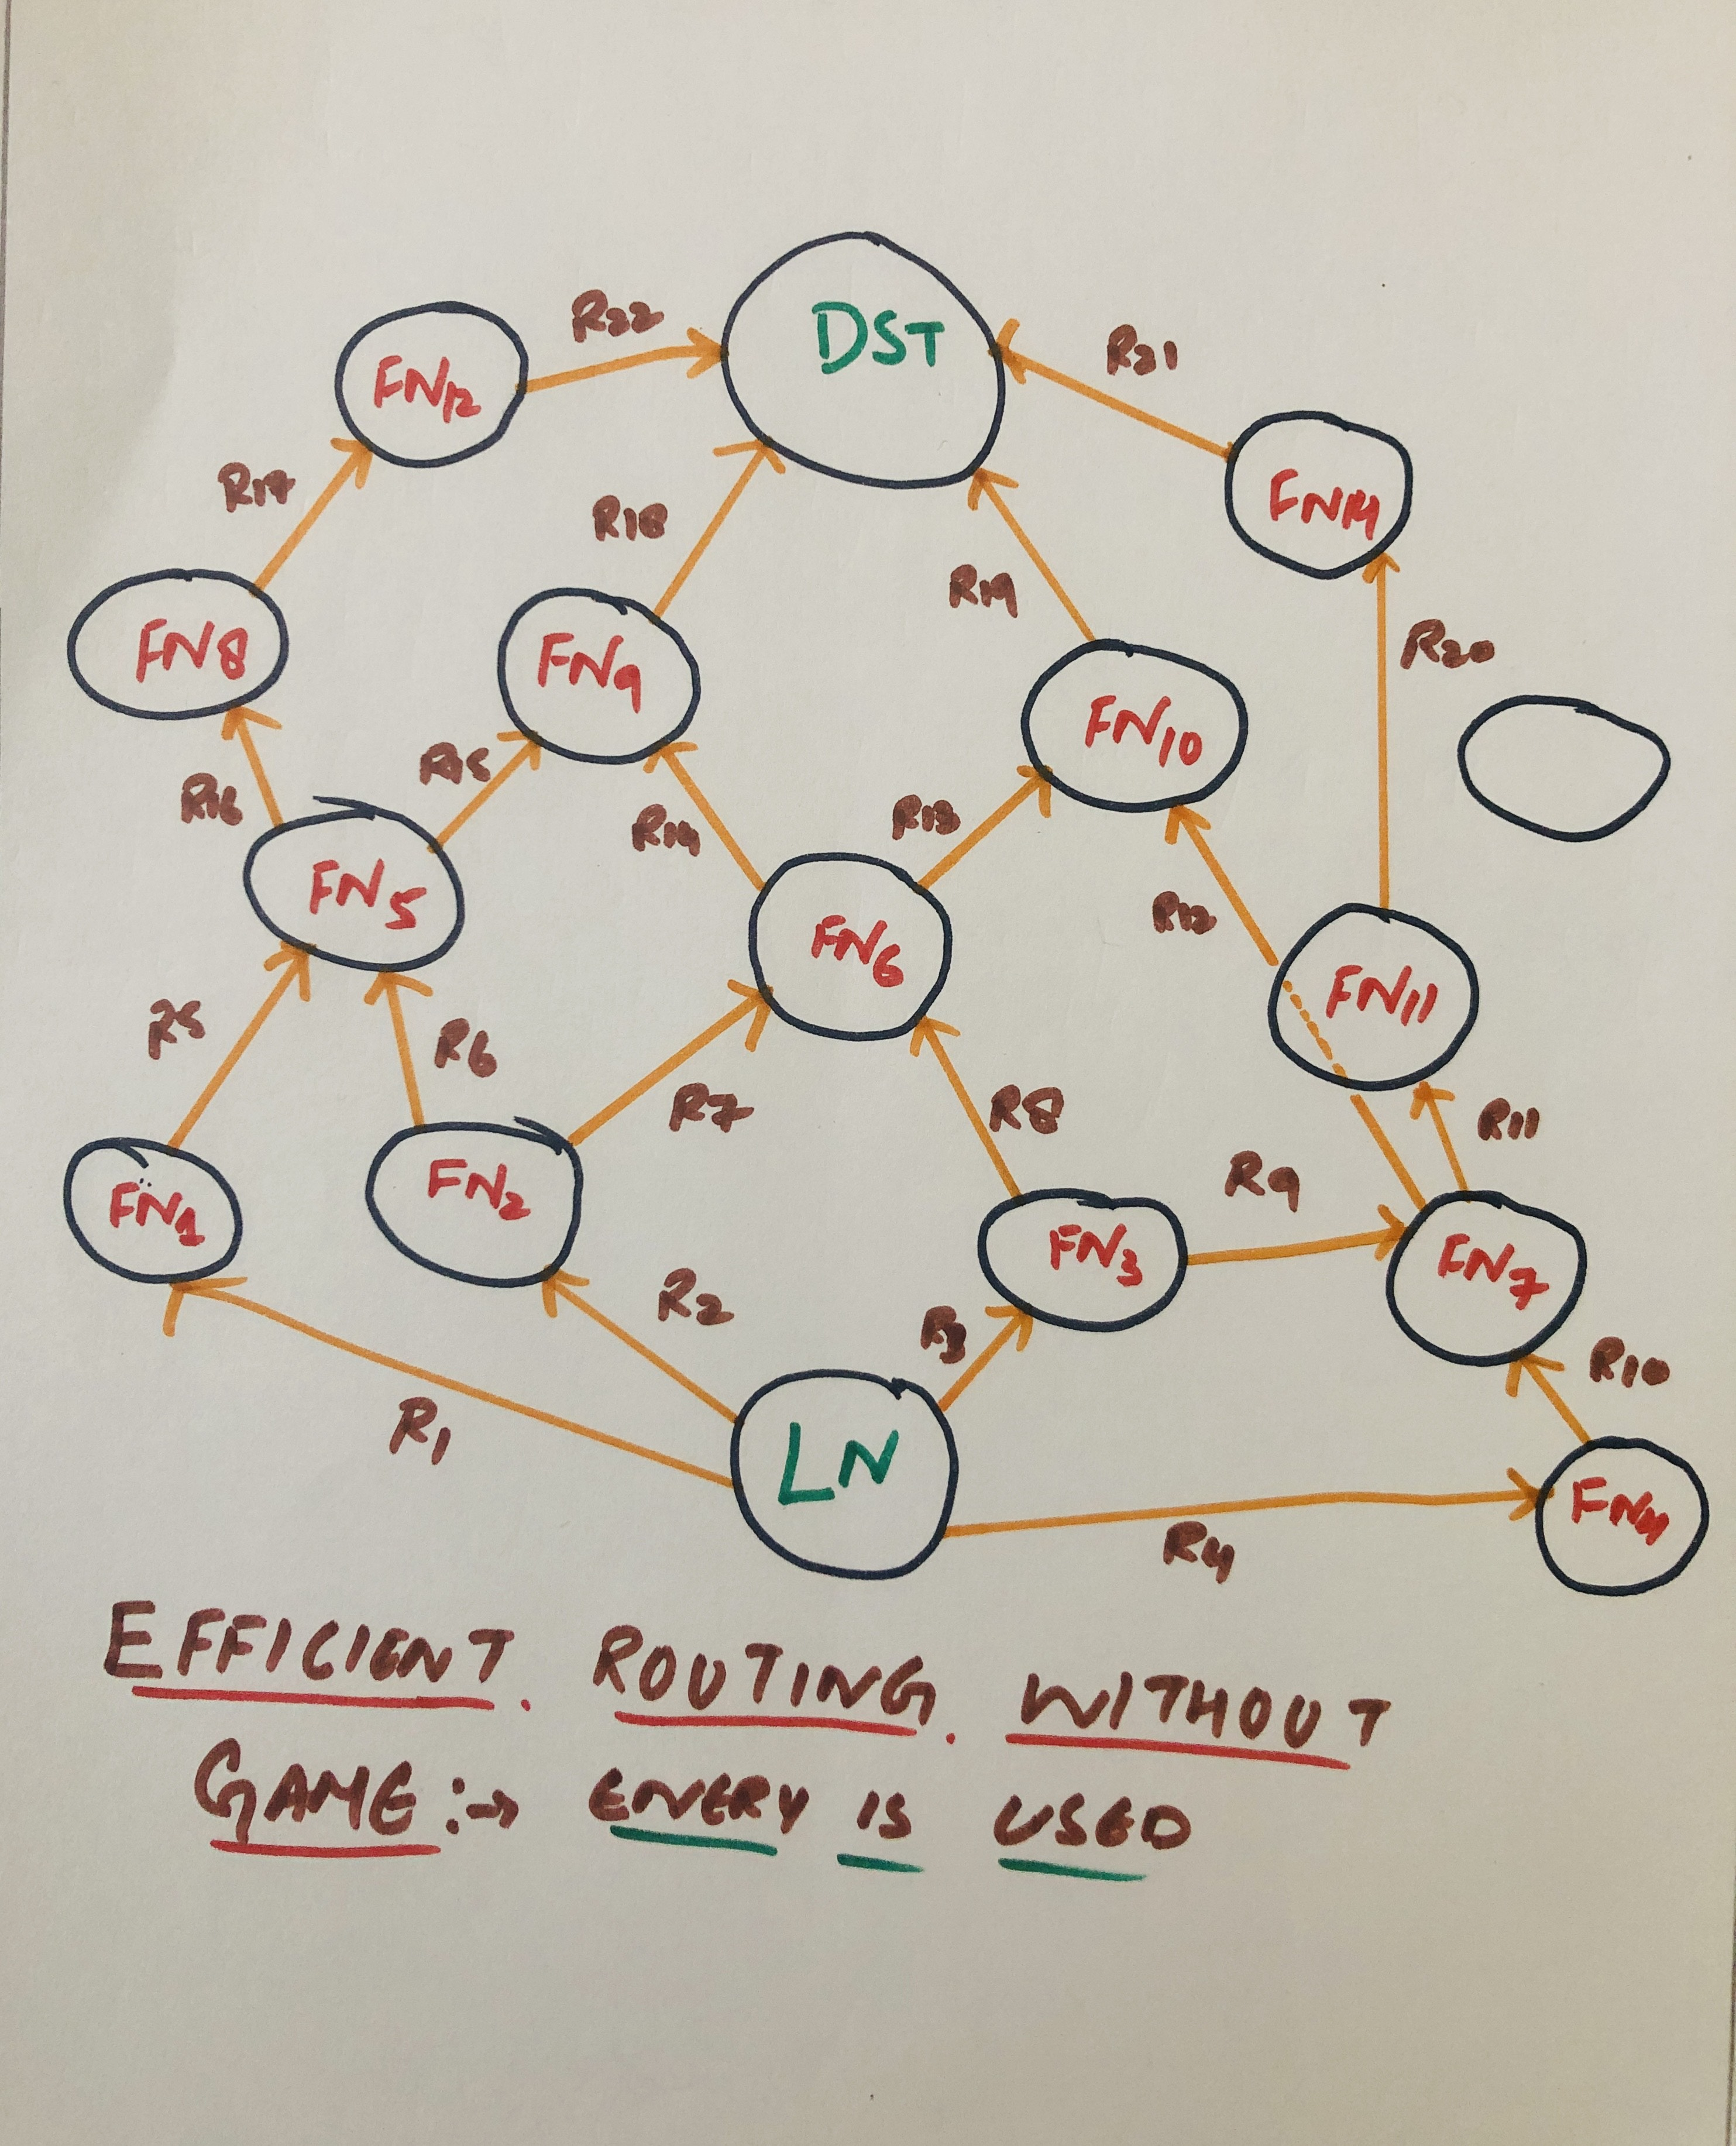 DST
R22
R21
FN12
FN14
R17
R18
R19
R20
FN8
FN9
FN10
R16
R15
R14
R13
R12
FN5
FN6
FN11
R5
R6
R7
R8
R9
R11
FN1
FN2
FN3
FN7
R2
R3
R10
R1
LN
FN4
R4
EFFICIENT. ROUTING. WITHOUT
GAME :→ ENERY IS USED